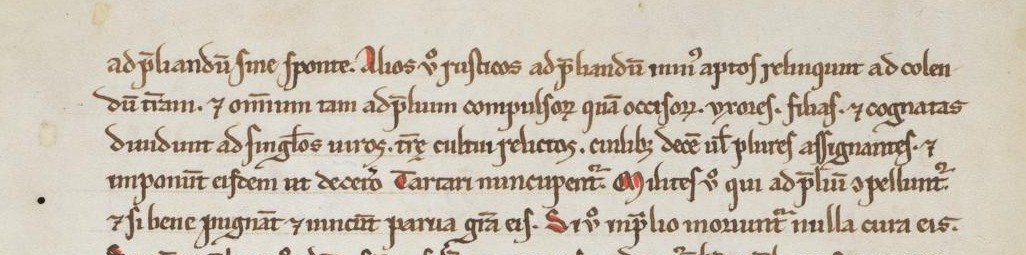 ad p̄liandū sine sponte. Alios v̊ rusticos ad p̄liandū min᾽ aptos relinquunt ad colen
dū t̄ram. ⁊ omnium tam ad p̄lium compulsoꝝ quā occisoꝝ. vxores. filias. ⁊ cognatas
diuidunt ad singl̄os uiros. t̄rę cultui relictos. cuilibꝫ decē ul̄ plures assignantes. ⁊
imponūt eisdem ut decet̄o Tartari nuncupent᷑. Milites v̊ qui ad p̄liū ɔpellunt᷑.
⁊ si bene pugnāt ⁊ uincūt parua gr̄a eis. Si v̊ in p̄lio moriunt᷑ nulla cura eis.